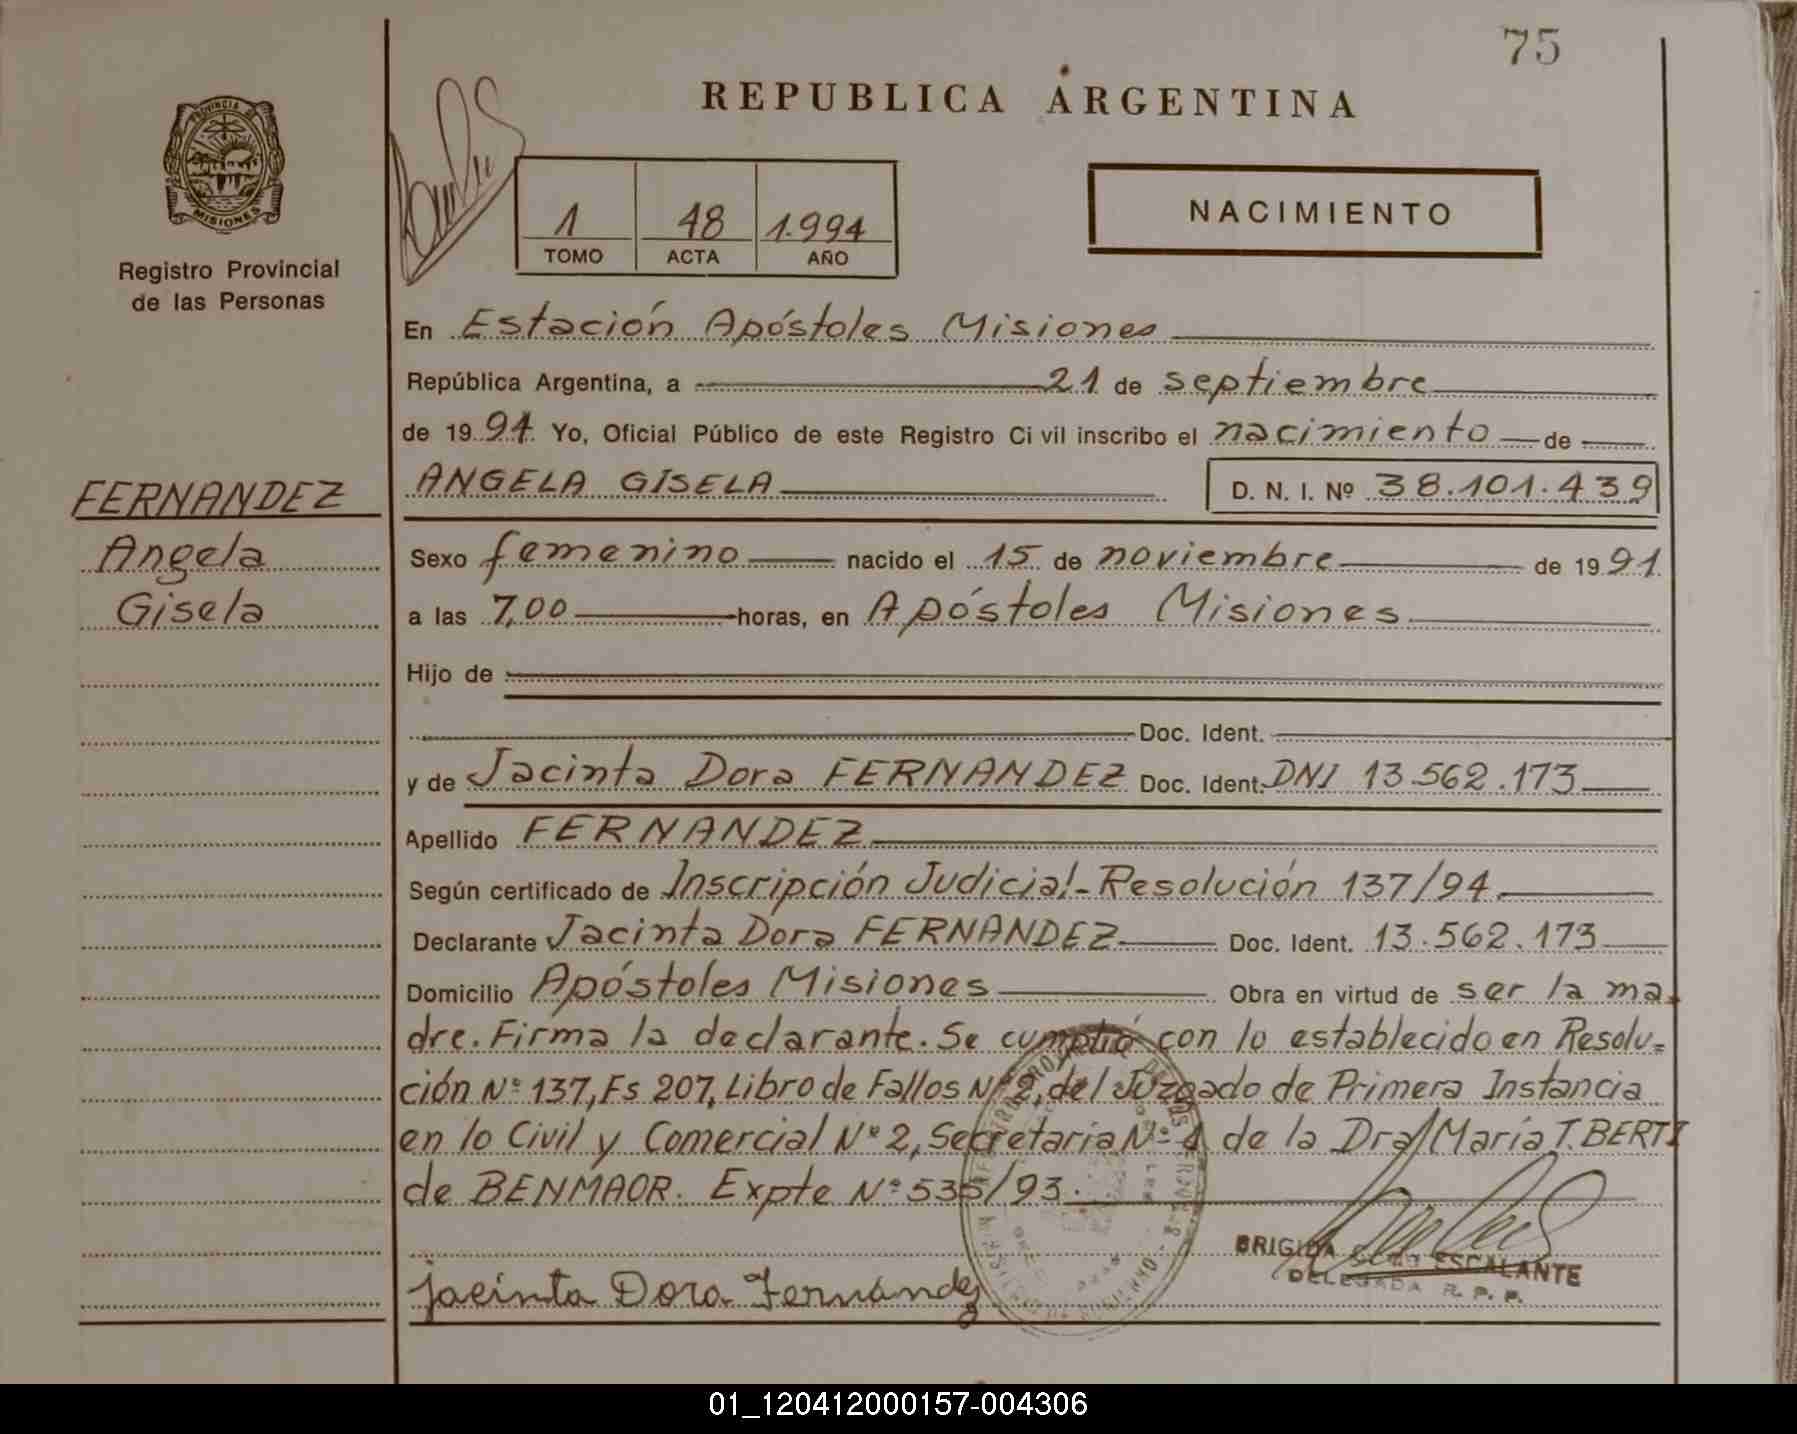 75
REPUBLICA ARGENTINA
PROVINCIA DE
MISIONES
Registro Provincial
de las Personas
1 48 1.994
TOMO ACTA AÑO
NACIMIENTO
En Estación Apóstoles Misiones
República Argentina, a 21 de septiembre
de 1994 Yo, Oficial Público de este Registro Civil inscribo el nacimiento de
FERNANDEZ
Angela
Gisela
ANGELA GISELA D. N. I. Nº 38.101.439
Sexo femenino nacido el 15 de noviembre de 1991
a las 7,00 horas, en Apóstoles Misiones
Hijo de
Doc. Ident.
y de Jacinta Dora FERNANDEZ Doc. Ident. DNI 13.562.173
Apellido FERNANDEZ
Según certificado de Inscripción Judicial-Resolución 137/94.
Declarante Jacinta Dora FERNANDEZ Doc. Ident. 13.562.173
Domicilio Apóstoles Misiones Obra en virtud de ser la ma-
dre. Firma la declarante. Se cumplió con lo establecido en Resolu=
ción Nº 137, Fs 207, Libro de Fallos Nº 2, del Juzgado de Primera Instancia
en lo Civil y Comercial Nº 2, Secretaria Nº 4 de la Dra María T. BERTI
de BENMAOR. Expte Nº 535/93.
BRIGIDA ESCALANTE
DELEGADA R. P. P.
jacinta Dora Fernández
01_120412000157-004306